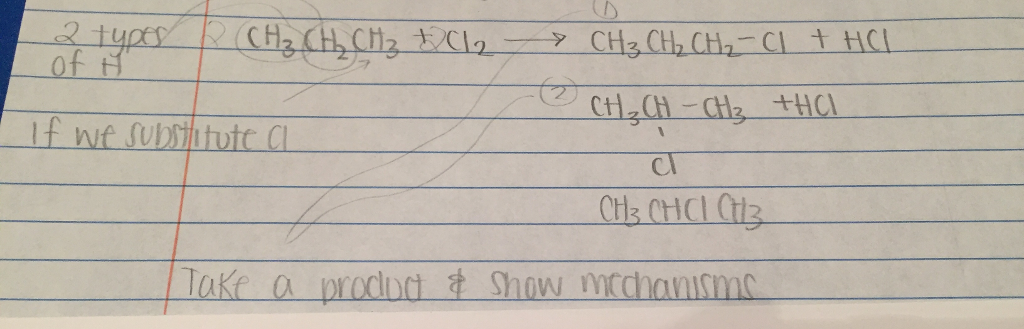 ①
2 types CH3CH2CH3 + Cl2 → CH3CH2CH2-Cl + HCl
of H
② CH3CH-CH3 +HCl
If we substitute Cl
Cl
CH3CHClCH3
Take a product & show mechanisms